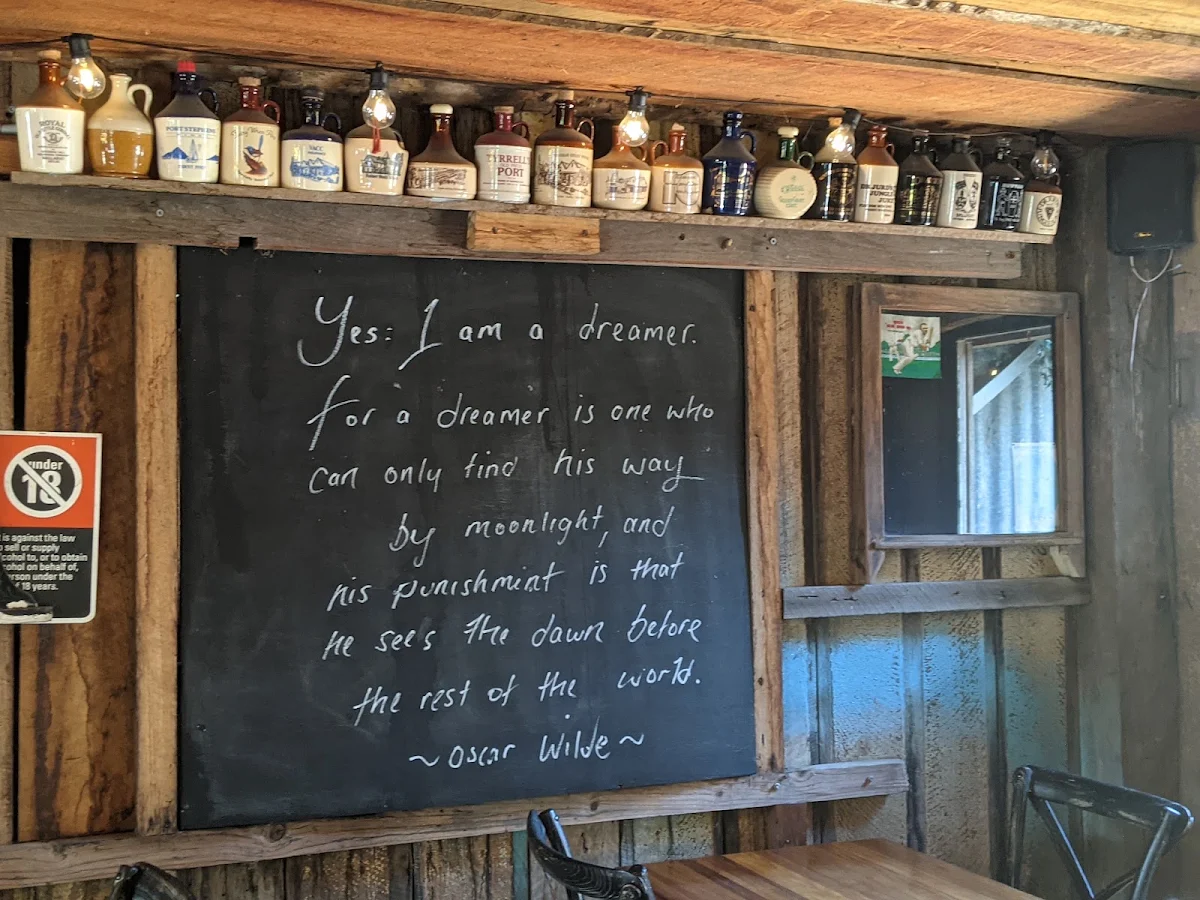 ROYAL
PORT STEPHENS
TYRRELL'S
PORT
DR. JURD'S
JUNGLE
JUICE
Yes: I am a dreamer.
For a dreamer is one who
can only find his way
by moonlight, and
his punishment is that
he sees the dawn before
the rest of the world.
~Oscar Wilde~
under
18
is against the law
sell or supply
cohol to, or to obtain
cohol on behalf of,
erson under the
18 years.